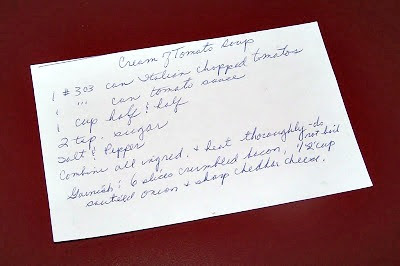 Cream of Tomato Soup
1 #303 can Italian chopped tomatos
" " " can tomato sauce
1 cup half & half
2 tsp. sugar
Salt & Pepper
Combine all ingred. & heat thoroughly-do not boil
Garnish: 6 slices crumbled bacon, 1/2 cup
sauteed onion & sharp cheddar cheese.